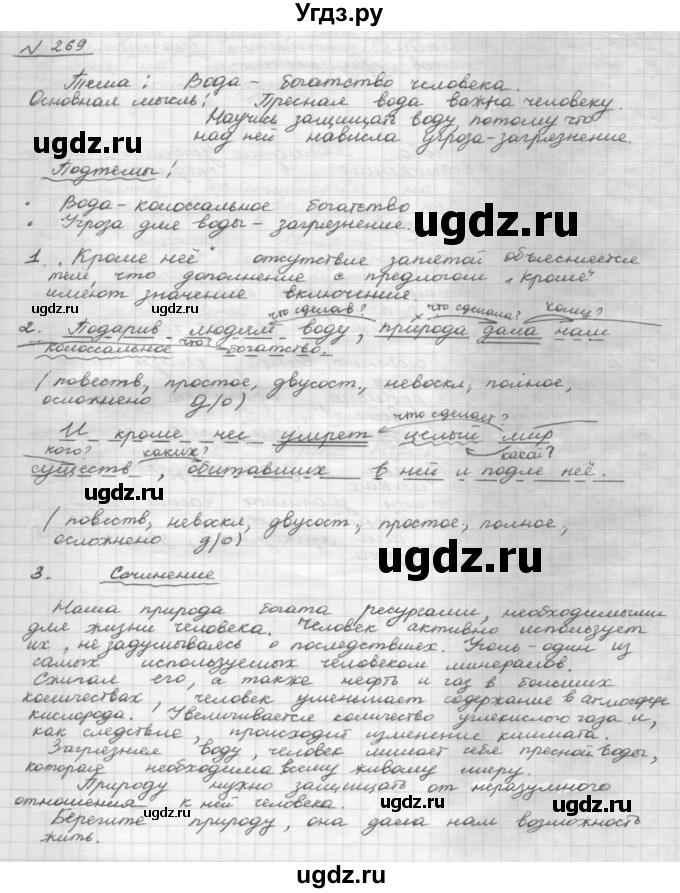 Угдз.ру
N 269
Тема: Вода - богатство человека.
Основная мысль: Пресная вода важна человеку.
Научись защищать воду, потому что
над ней нависла угроза-загрязнение.
ugdz.ru
Подтемы:
• Вода-колоссальное богатство
• Угроза для воды - загрязнение.
ugdz.ru
1. „Кроме неё" отсутствие запятой объясняется
тем, что дополнение с предлогом „кроме"
имеют значение включение.
ugdz.ru
что сделав? что сделала? кому?
2. Подарив людям воду, природа дала нам
что?
колоссальное богатство.
(повеств, простое, двусост., невоскл, полное,
осложнено д/о)
ugdz.ru
что сделает?
И кроме нее умрет целый мир
кого? каких? какой?
существ, обитавших в ней и подле неё.
ugdz.ru
ugdz.ru
(повеств, невоскл, двусост, простое, полное,
осложнено д/о)
ugdz.ru
3. Сочинение
Наша природа богата ресурсами, необходимыми
для жизни человека. Человек активно использует
их, не задумываясь о последствиях. Уголь - один из
самых используемых человеком минералов.
ugdz.ru
Сжигая его, а также нефть и газ в больших
количествах, человек уменьшает содержание в атмосфере
кислорода. Увеличивается количество углекислого газа и,
как следствие, происходит изменение климата.
ugdz.ru
Загрязняя воду, человек лишает себя пресной воды,
которая необходима всему живому миру.
ugdz.ru
Природу нужно защищать от неразумного
отношения к ней человека.
Берегите природу, она дала нам возможность
жить.
ugdz.ru